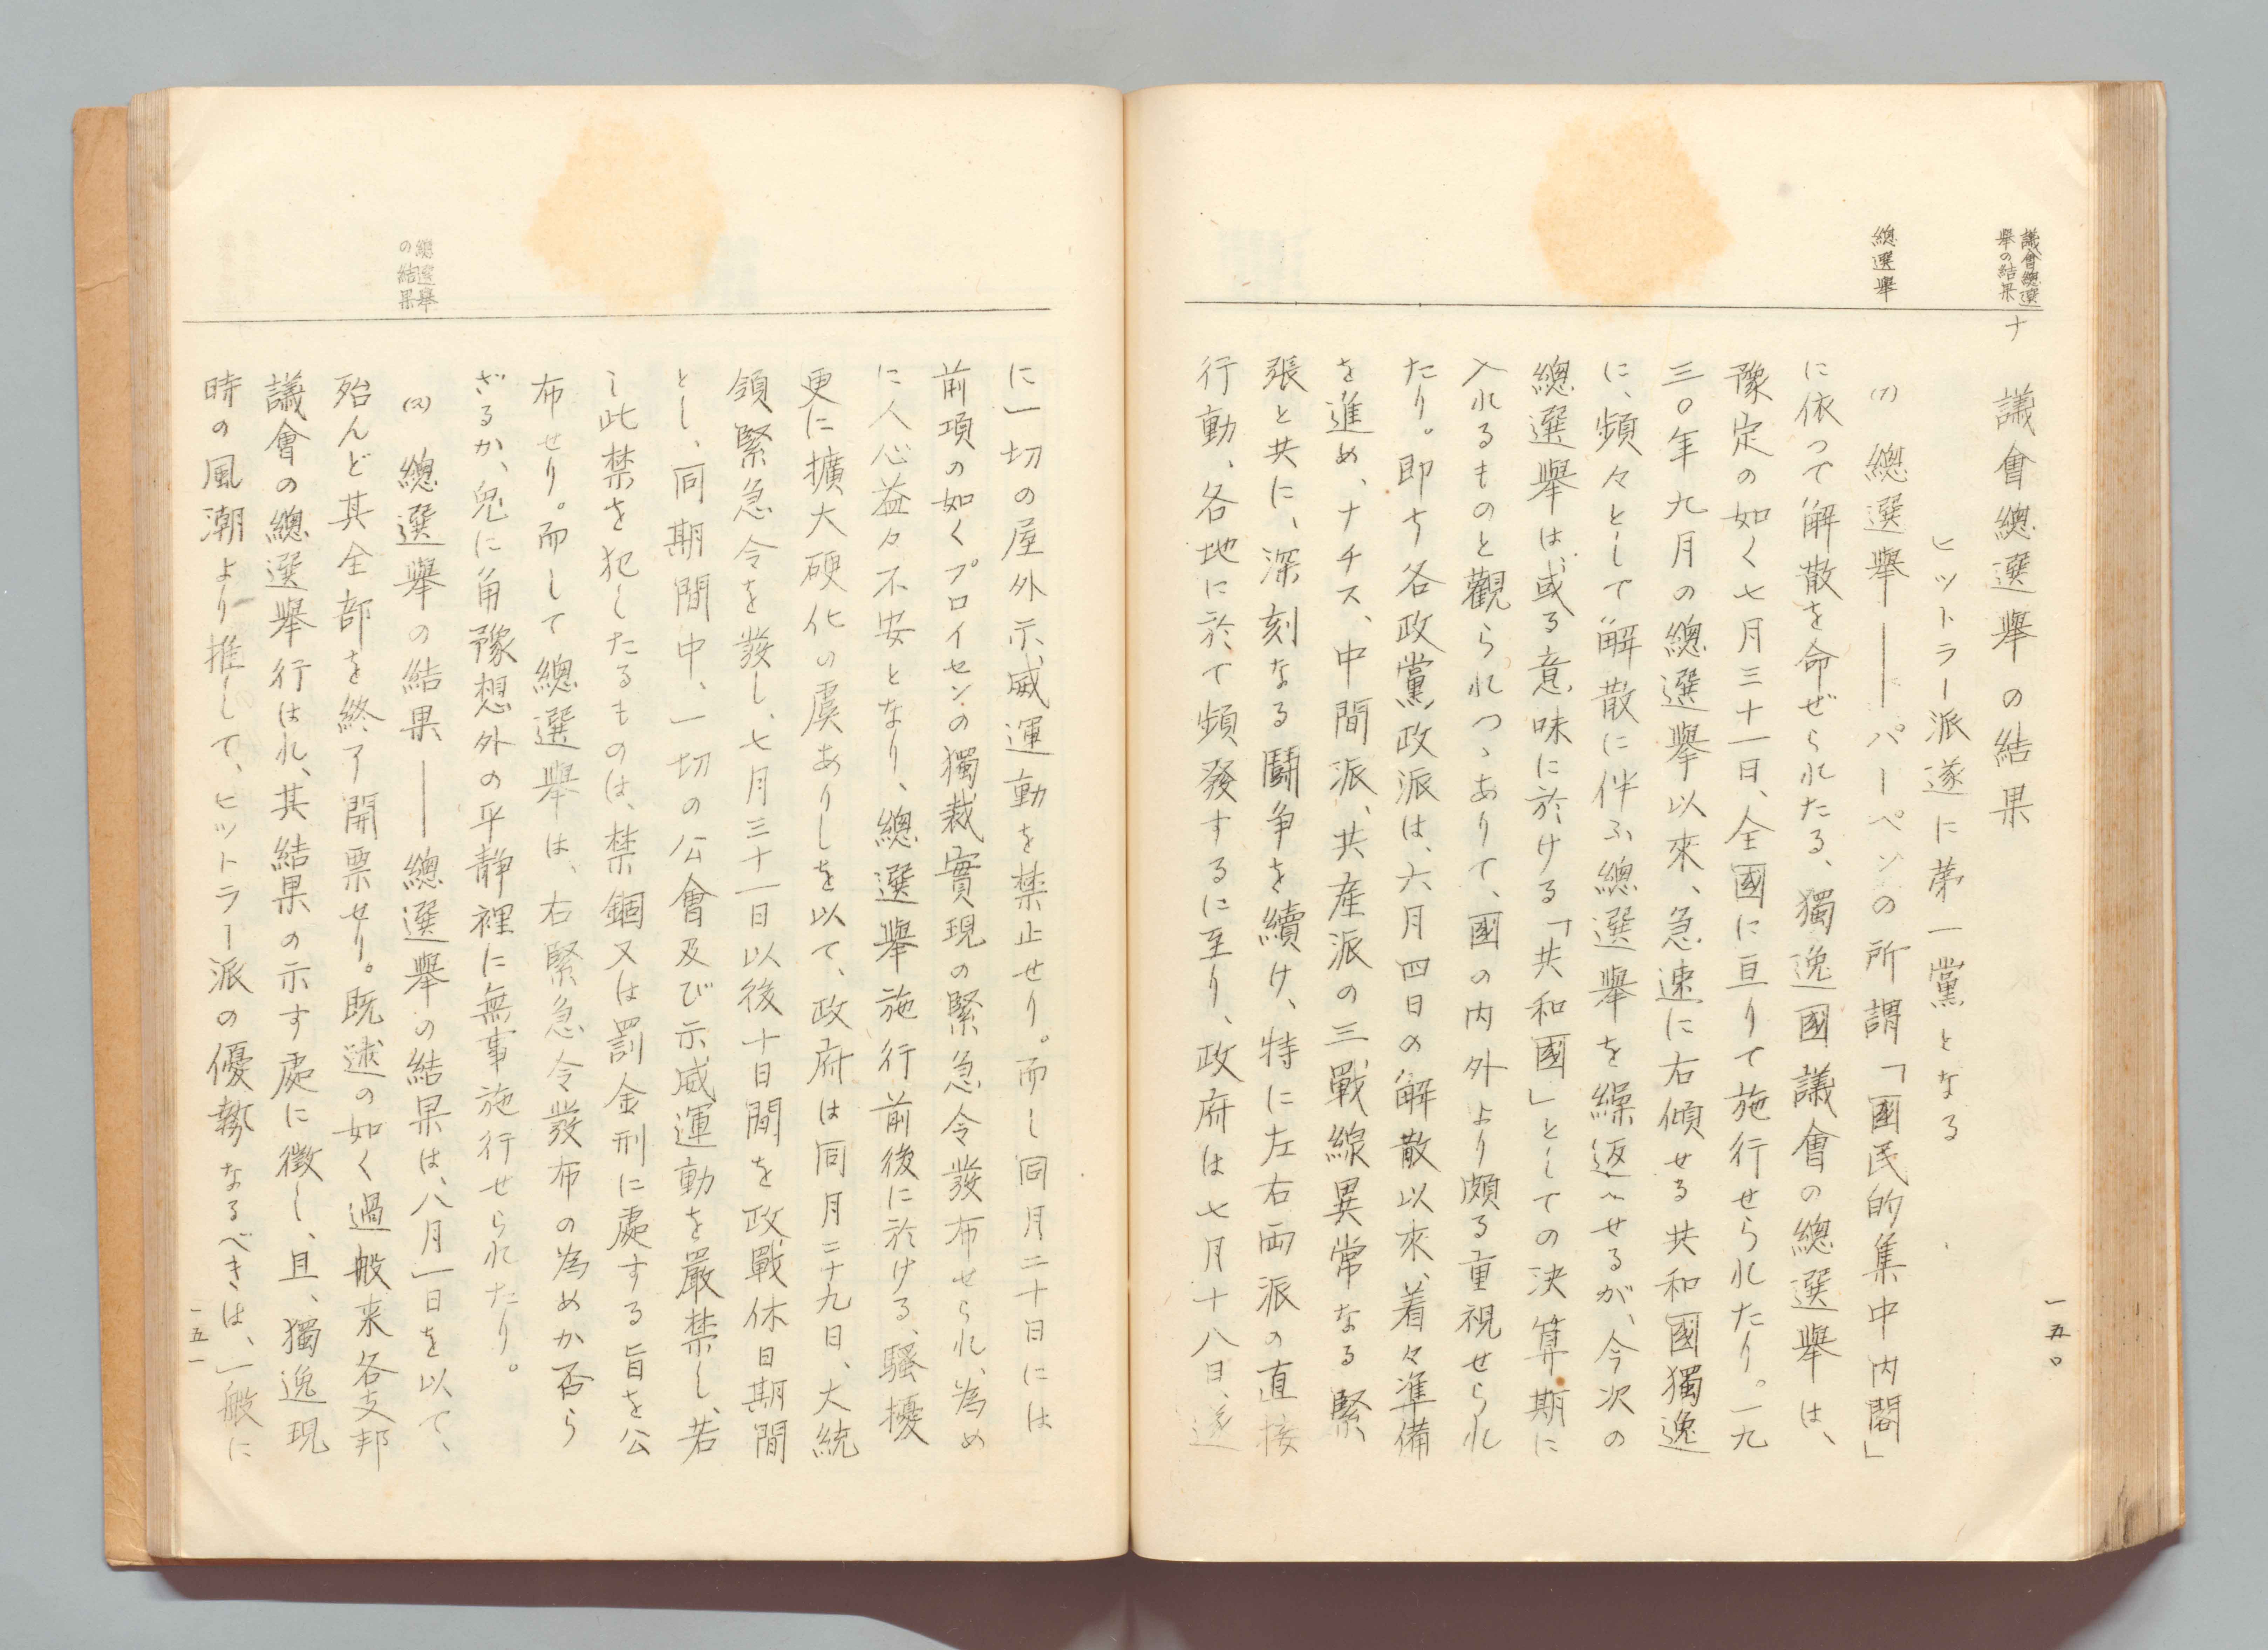 議會總選
擧の結果
總選擧
ナ　議會總選擧の結果
ヒットラー派遂に第一黨となる
(ｱ)　總選擧――パーペンの所謂「國民的集中内閣」
に依つて解散を命ぜられたる、獨逸國議會の總選擧は、
豫定の如く七月三十一日、全國に亘りて施行せられたり。一九
三〇年九月の總選擧以來、急速に右傾せる共和國獨逸
に、頻々として解散に伴ふ總選擧を繰返へせるが、今次の
總選擧は、或る意味に於ける「共和國」としての決算期に
入れるものと觀られつゝありて、國の内外より頗る重視せられ
たり。即ち各政黨政派は、六月四日の解散以來、着々準備
を進め、ナチス、中間派、共産派の三戰線異常なる緊
張と共に、深刻なる鬪争を續け、特に左右両派の直接
行動、各地に於て頻發するに至り、政府は七月十八日、遂
一五〇
に一切の屋外示威運動を禁止せり。而し同月二十日には
前項の如くプロイセンの獨裁實現の緊急令發布せられ、為め
に人心益々不安となり、總選擧施行前後に於ける、騷擾
更に擴大硬化の虞ありしを以て、政府は同月二十九日、大統
領緊急令を發し、七月三十一日以後十日間を政戰休日期間
とし、同期間中、一切の公會及び示威運動を嚴禁し、若
し此禁を犯したるものは、禁錮又は罰金刑に處する旨を公
布せり。而して總選擧は、右緊急令發布の為めか否ら
ざるか、兎に角豫想外の平静裡に無事施行せられたり。
總選擧
の結果
(ｽ)　總選擧の結果――總選擧の結果は、八月一日を以て、
殆んど其全部を終了開票せり。既述の如く過般来各支邦
議會の總選擧行はれ、其結果の示す處に徴し、且、獨逸現
時の風潮より推して、ヒットラー派の優勢なるべきは、一般に
一五一